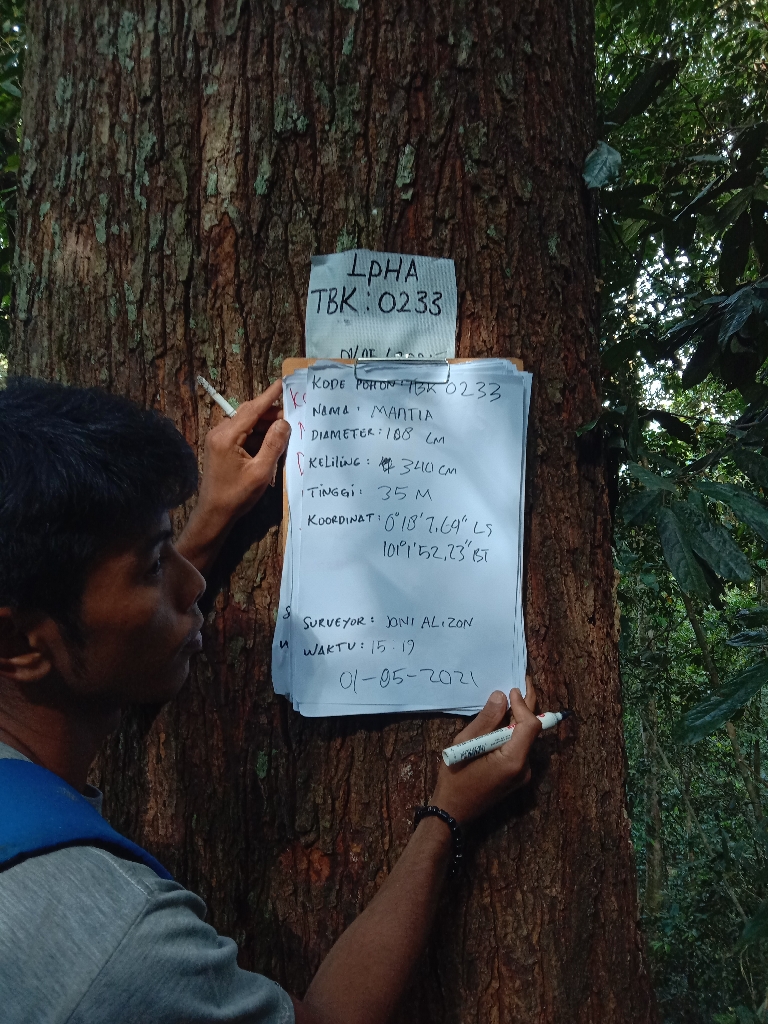 LPHA
TBK: 0233
KODE POHON: TBK 0233
NAMA: MANTIA
DIAMETER: 108 CM
KELILING: 340 CM
TINGGI: 35 M
KOORDINAT: 0°18'7,69" LS
101°1'52,23" BT
SURVEYOR: JONI ALIZON
WAKTU: 15.17
01-05-2021